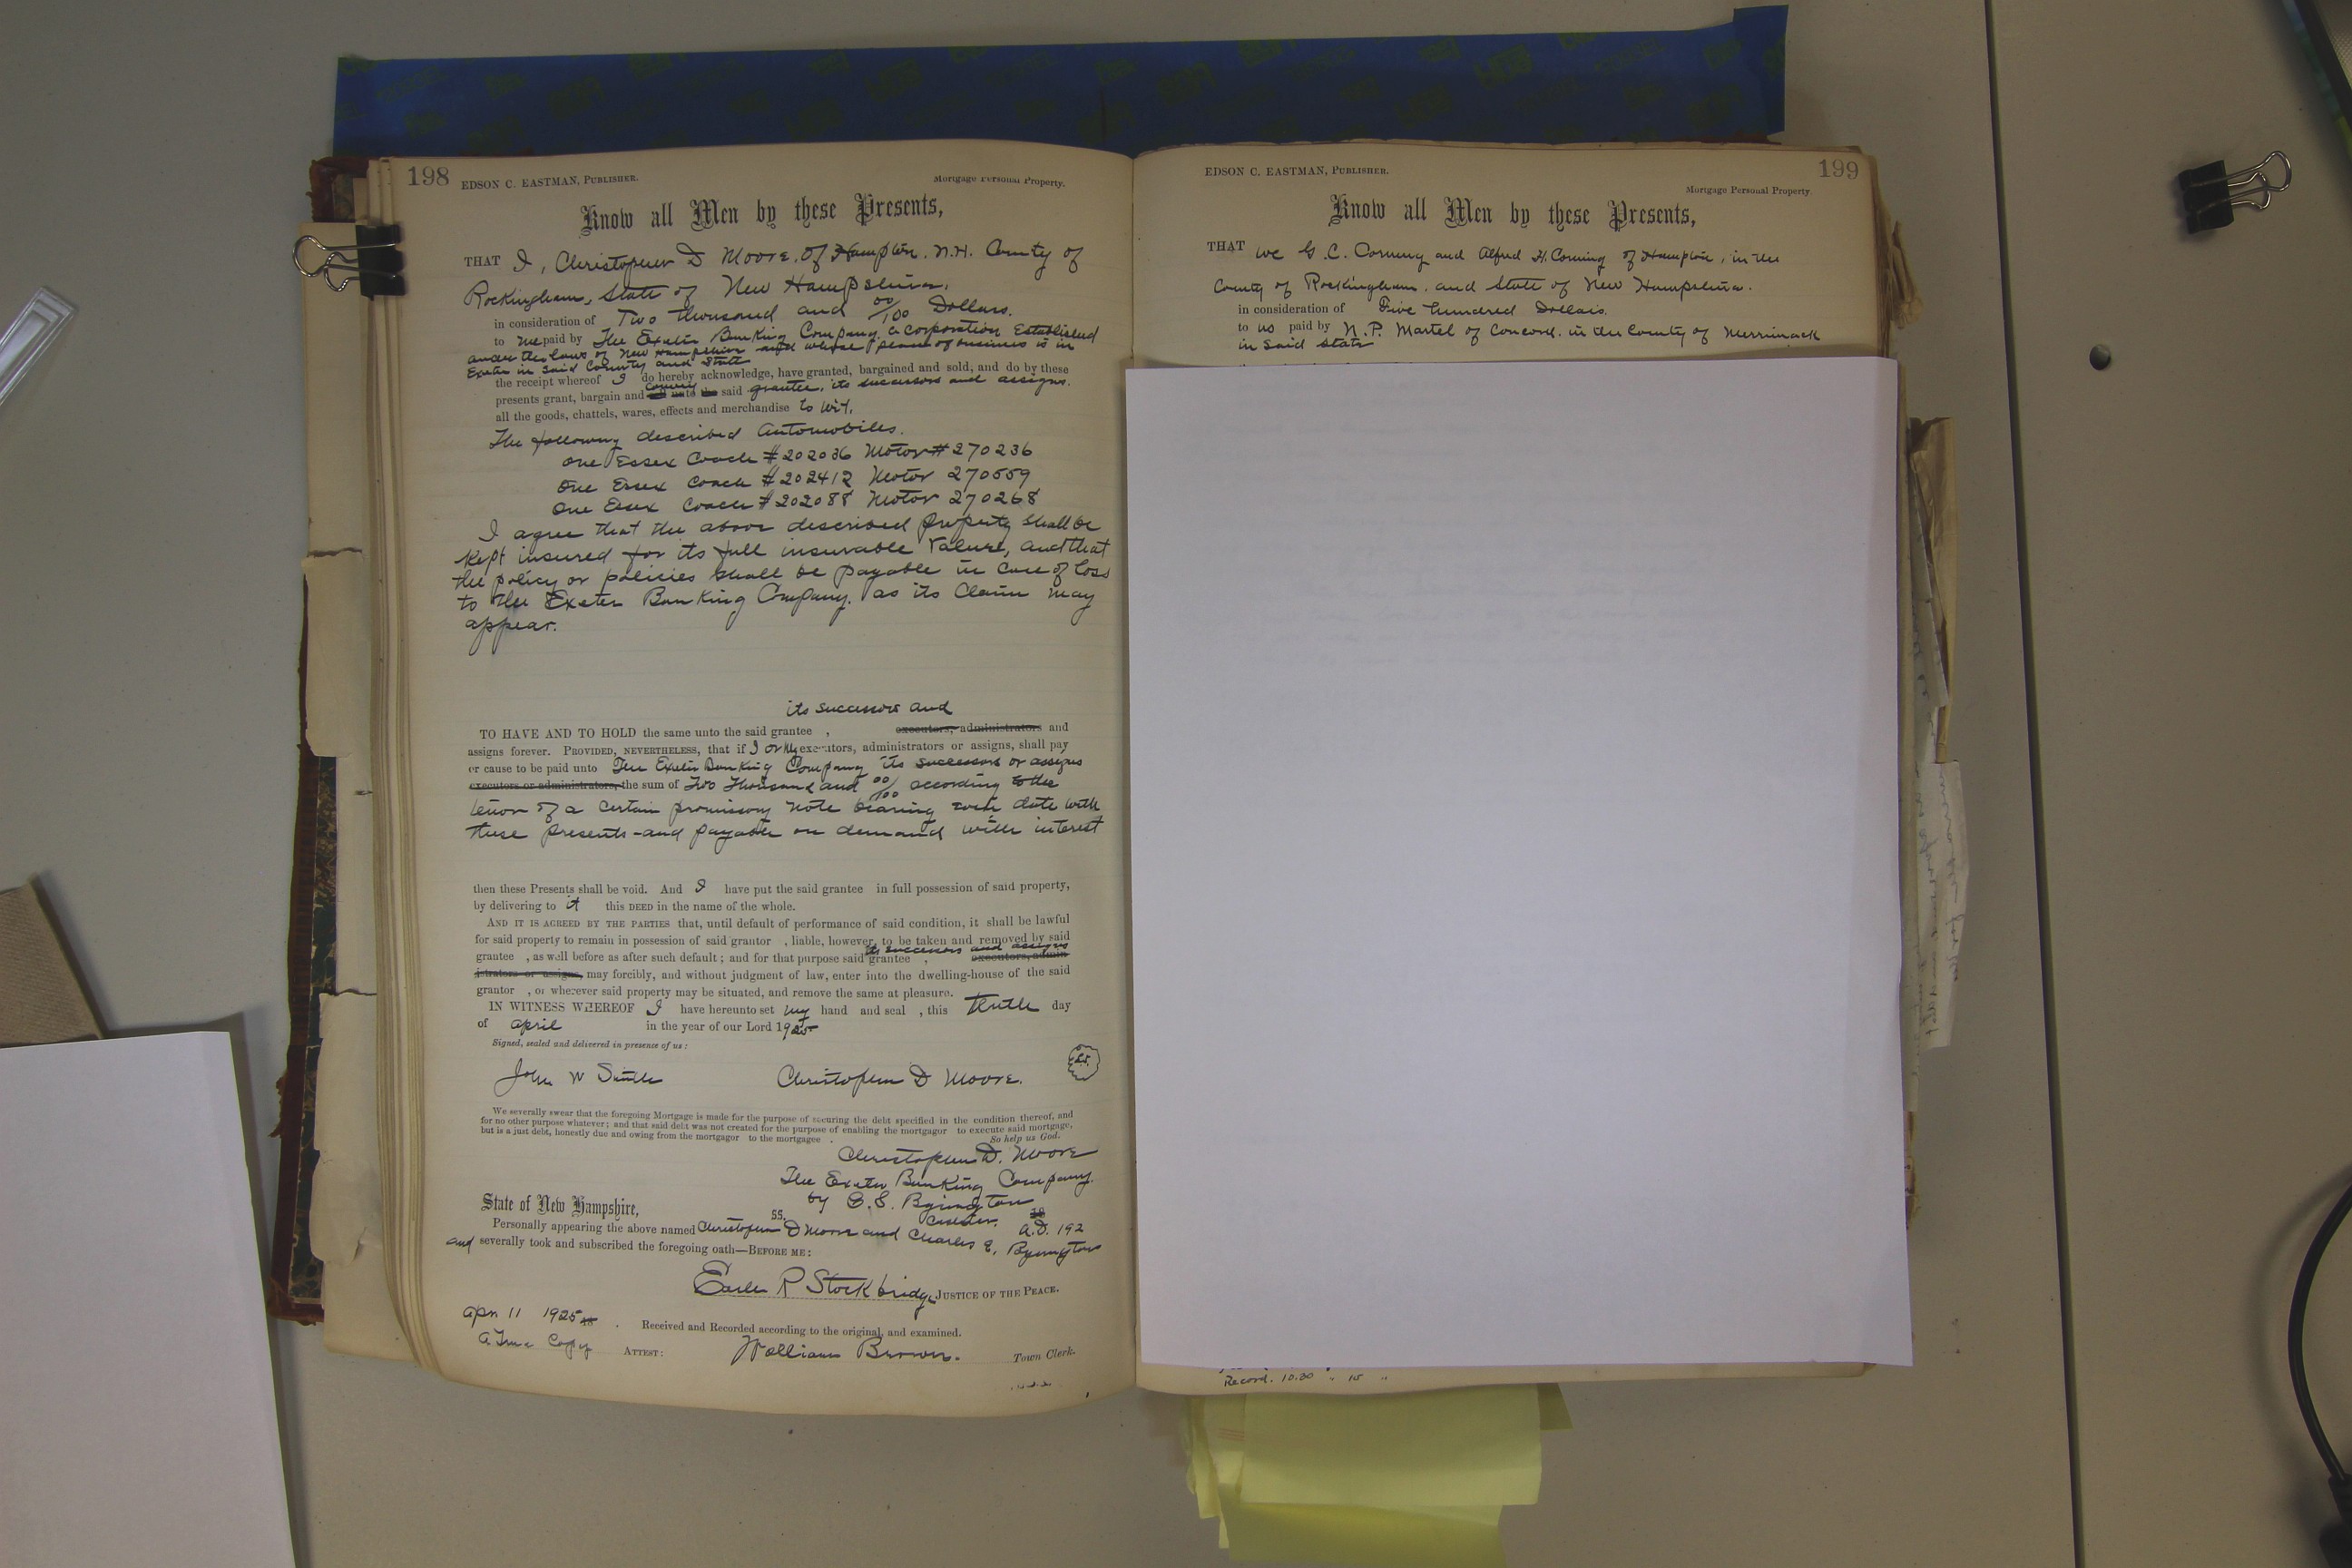 198 EDSON C. EASTMAN, PUBLISHER. Mortgage Personal Property.
Know all Men by these Presents,
THAT I, Christopher D Moore, of Hampton. N.H. County of
Rockingham, State of New Hampshire,
in consideration of Two thousand and 00/100 Dollars.
to me paid by The Exeter Banking Company a corporation Established
under the laws of New Hampshire and whose place of business is in
Exeter in said County and State
the receipt whereof I do hereby acknowledge, have granted, bargained and sold, and do by these
presents grant, bargain and convey unto said grantee, its successors and assigns.
all the goods, chattels, wares, effects and merchandise to wit,
The following described Automobiles.
One Essex Coach #202036 Motor #270236
One Essex Coach #202412 Motor 270559
One Essex Coach #202088 Motor 270268
I agree that the above described property shall be
kept insured for its full insurable value, and that
the policy or policies shall be payable in case of loss
to the Exeter Banking Company. as its Claim may
appear.
its successors and
TO HAVE AND TO HOLD the same unto the said grantee , executors, administrators and
assigns forever. PROVIDED, NEVERTHELESS, that if I or my executors, administrators or assigns, shall pay
or cause to be paid unto The Exeter Banking Company its successors or assigns
executors or administrators, the sum of Two Thousand and 00/100 according to the
tenor of a certain promissory note bearing even date with
these presents - and payable on demand with interest
then these Presents shall be void. And I have put the said grantee in full possession of said property,
by delivering to it this DEED in the name of the whole.
AND IT IS AGREED BY THE PARTIES that, until default of performance of said condition, it shall be lawful
for said property to remain in possession of said grantor , liable, however, to be taken and removed by said
its successors and assigns
grantee , as well before as after such default; and for that purpose said grantee , executors, admin
istrators or assigns, may forcibly, and without judgment of law, enter into the dwelling-house of the said
grantor , or wherever said property may be situated, and remove the same at pleasure.
IN WITNESS WHEREOF I have hereunto set my hand and seal , this tenth day
of April in the year of our Lord 1925
Signed, sealed and delivered in presence of us:
John W Smith Christopher D Moore.
We severally swear that the foregoing Mortgage is made for the purpose of securing the debt specified in the condition thereof, and
for no other purpose whatever; and that said debt was not created for the purpose of enabling the mortgagor to execute said mortgage,
but is a just debt, honestly due and owing from the mortgagor to the mortgagee . So help us God.
Christopher D. Moore
The Exeter Banking Company.
by Byington
State of New Hampshire,
SS. 18
A.D. 192
Personally appearing the above named Christopher D Moore and Charles E. Byington
and severally took and subscribed the foregoing oath—BEFORE ME:
Earle R Stockbridge JUSTICE OF THE PEACE.
Apr 11 1925 18 . Received and Recorded according to the original, and examined.
A True Copy ATTEST: William Brown. Town Clerk.
EDSON C. EASTMAN, PUBLISHER. 199
Mortgage Personal Property.
Know all Men by these Presents,
THAT We G.C. Corning and Alfred H. Corning of Hampton, in the
County of Rockingham. and State of New Hampshire.
in consideration of Five hundred Dollars.
to us paid by N.P. Martel of Concord. in the County of Merrimack
in said State
Record. 10.30 " 15 "